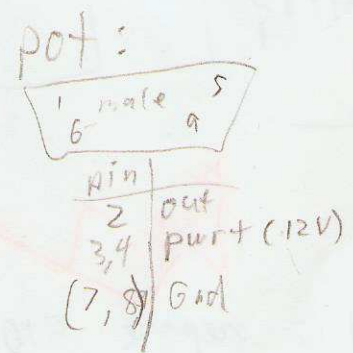 pot:
1 male 5
6 9
pin
2 out
3,4 pwr+ (12V)
(7,8) Gnd